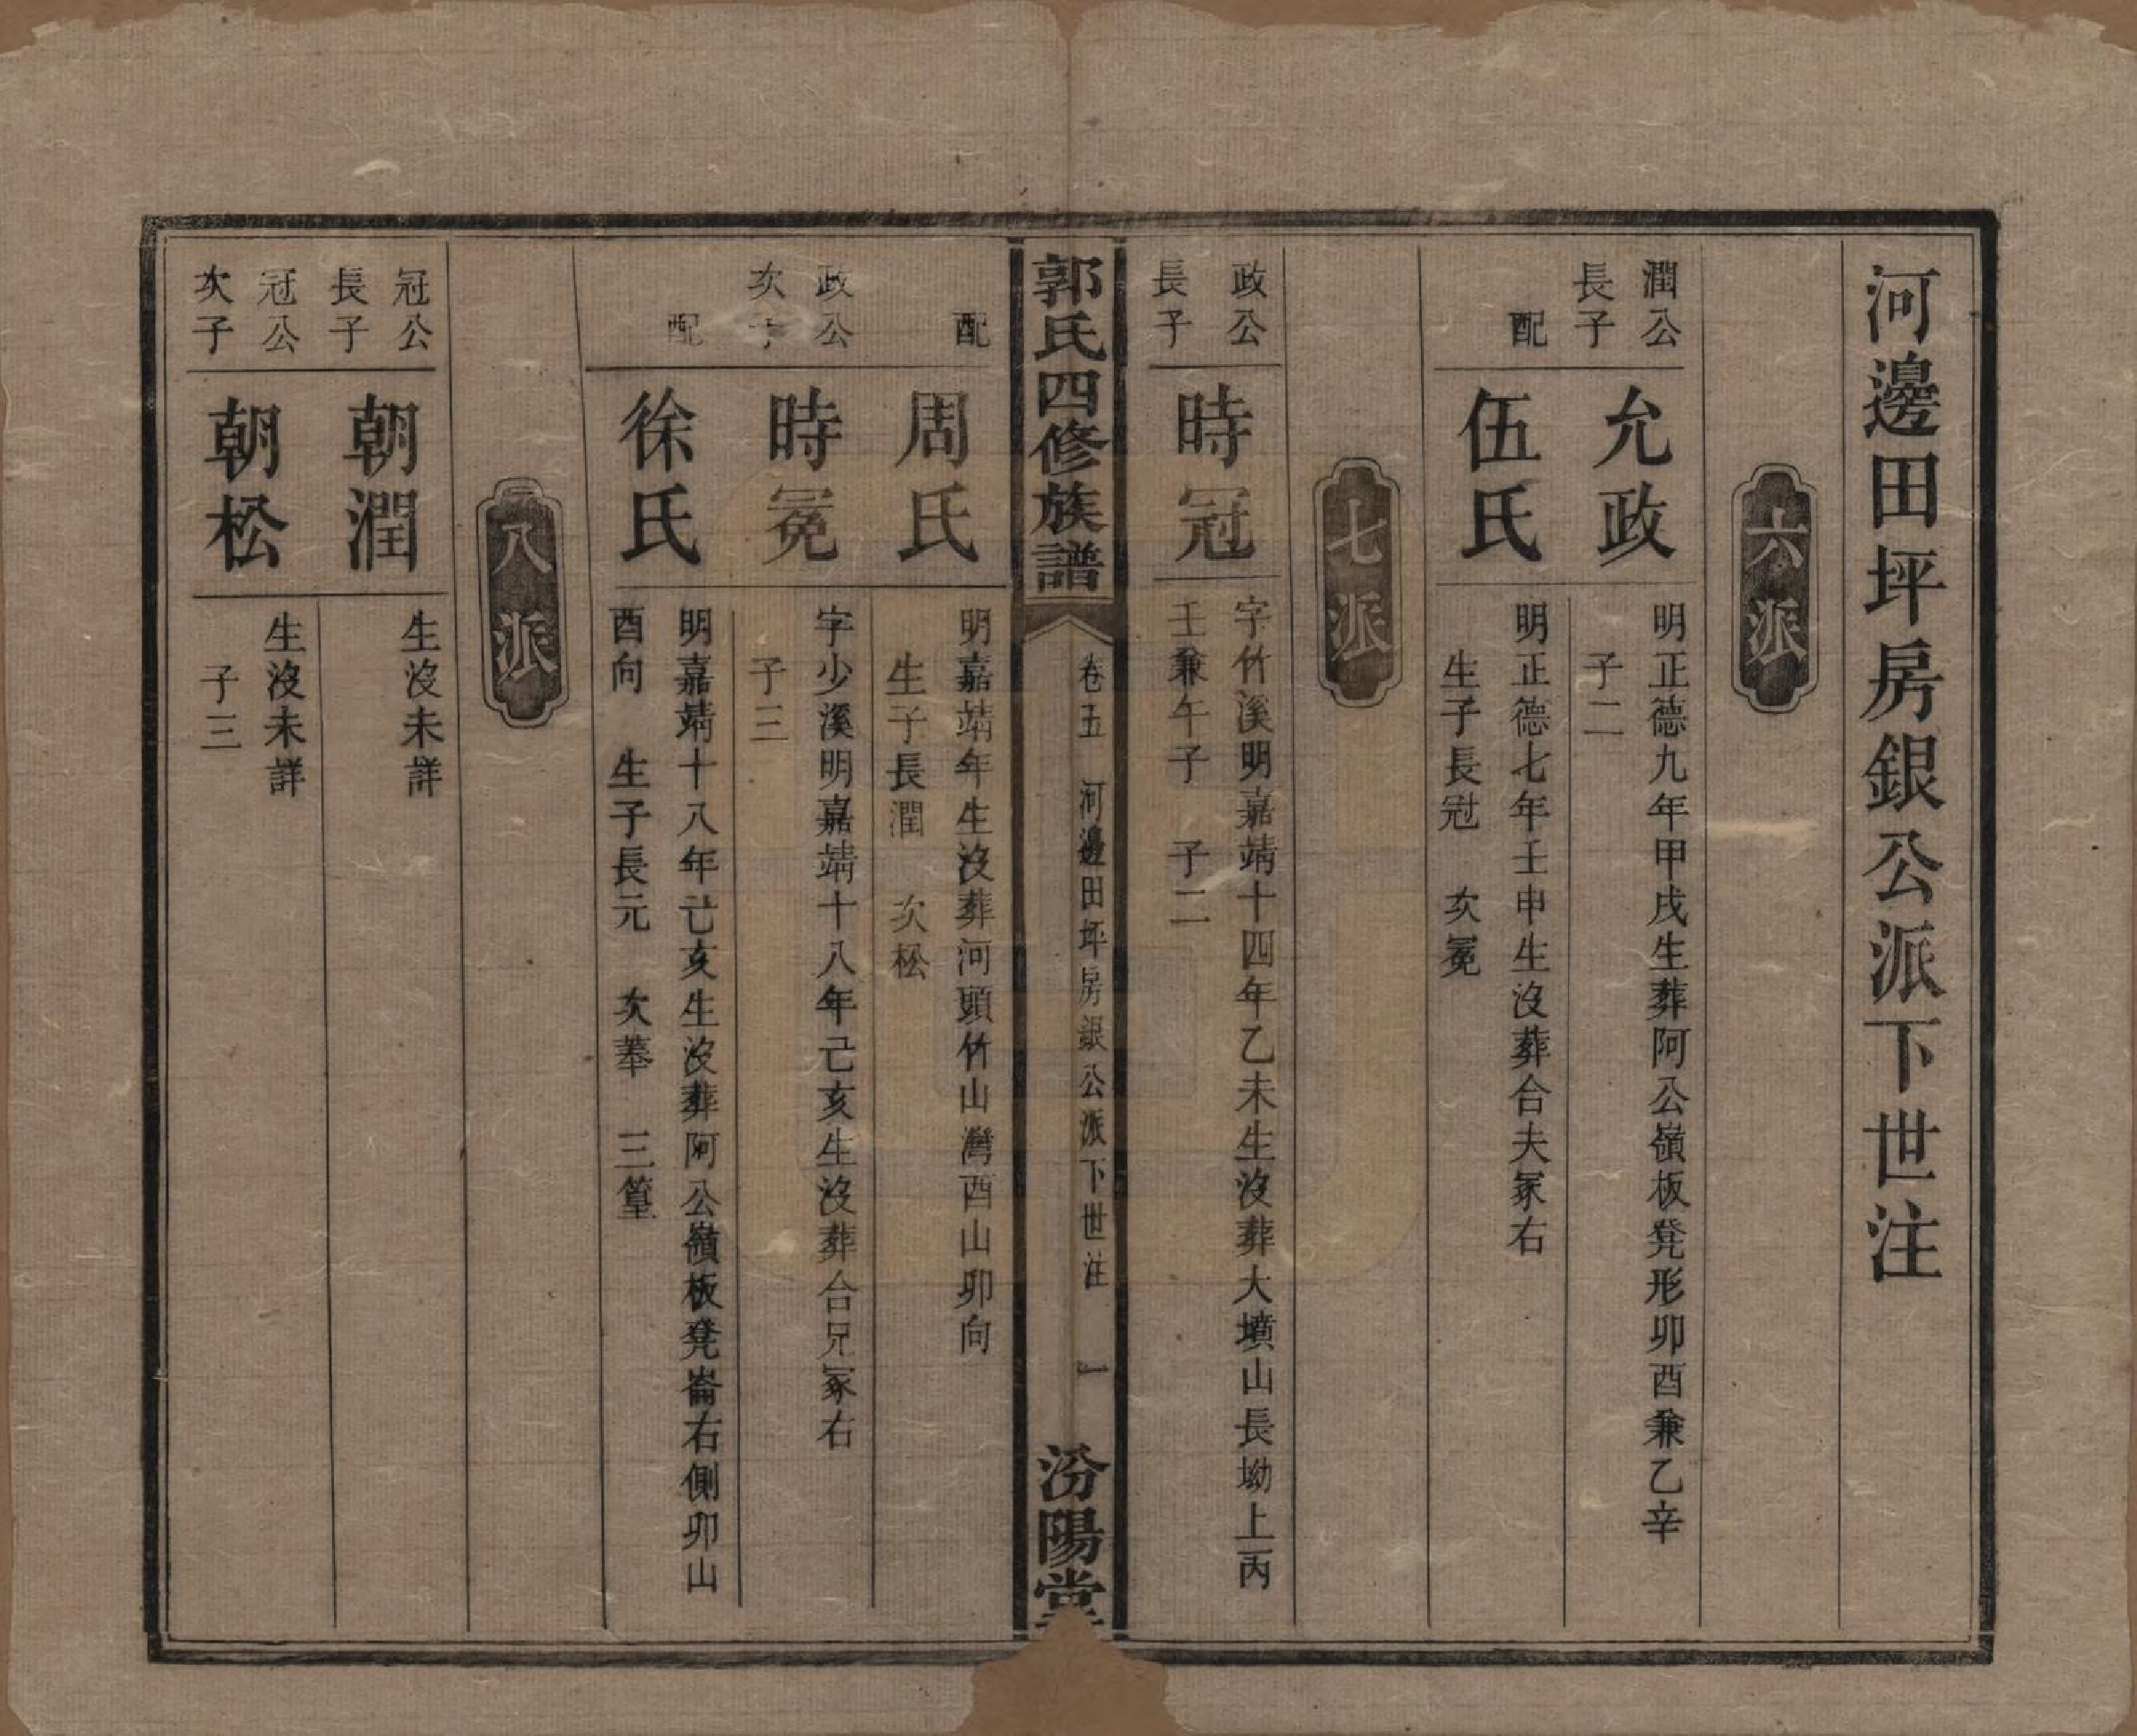 河邊田坪房銀公派下世注
六派
潤公
長子
允政
明正德九年甲戌生葬阿公嶺板凳形卯酉兼乙辛
子二
配
伍氏
明正德七年壬申生沒葬合夫冢右
生子長冠 次冕
七派
政公
長子
時冠
字竹溪明嘉靖十四年乙未生沒葬大墳山長坳上丙
壬兼午子 子二
郭氏四修族譜
卷五 河邊田坪房銀公派下世注 一
汾陽堂
配
周氏
明嘉靖年生沒葬河頭竹山灣酉山卯向
生子長潤 次松
政公
次子
時冕
字少溪明嘉靖十八年己亥生沒葬合兄冢右
子三
配
徐氏
明嘉靖十八年己亥生沒葬阿公嶺板凳崙右側卯山
酉向 生子長元 次菶 三篁
八派
冠公
長子
朝潤
生沒未詳
冠公
次子
朝松
生沒未詳
子三